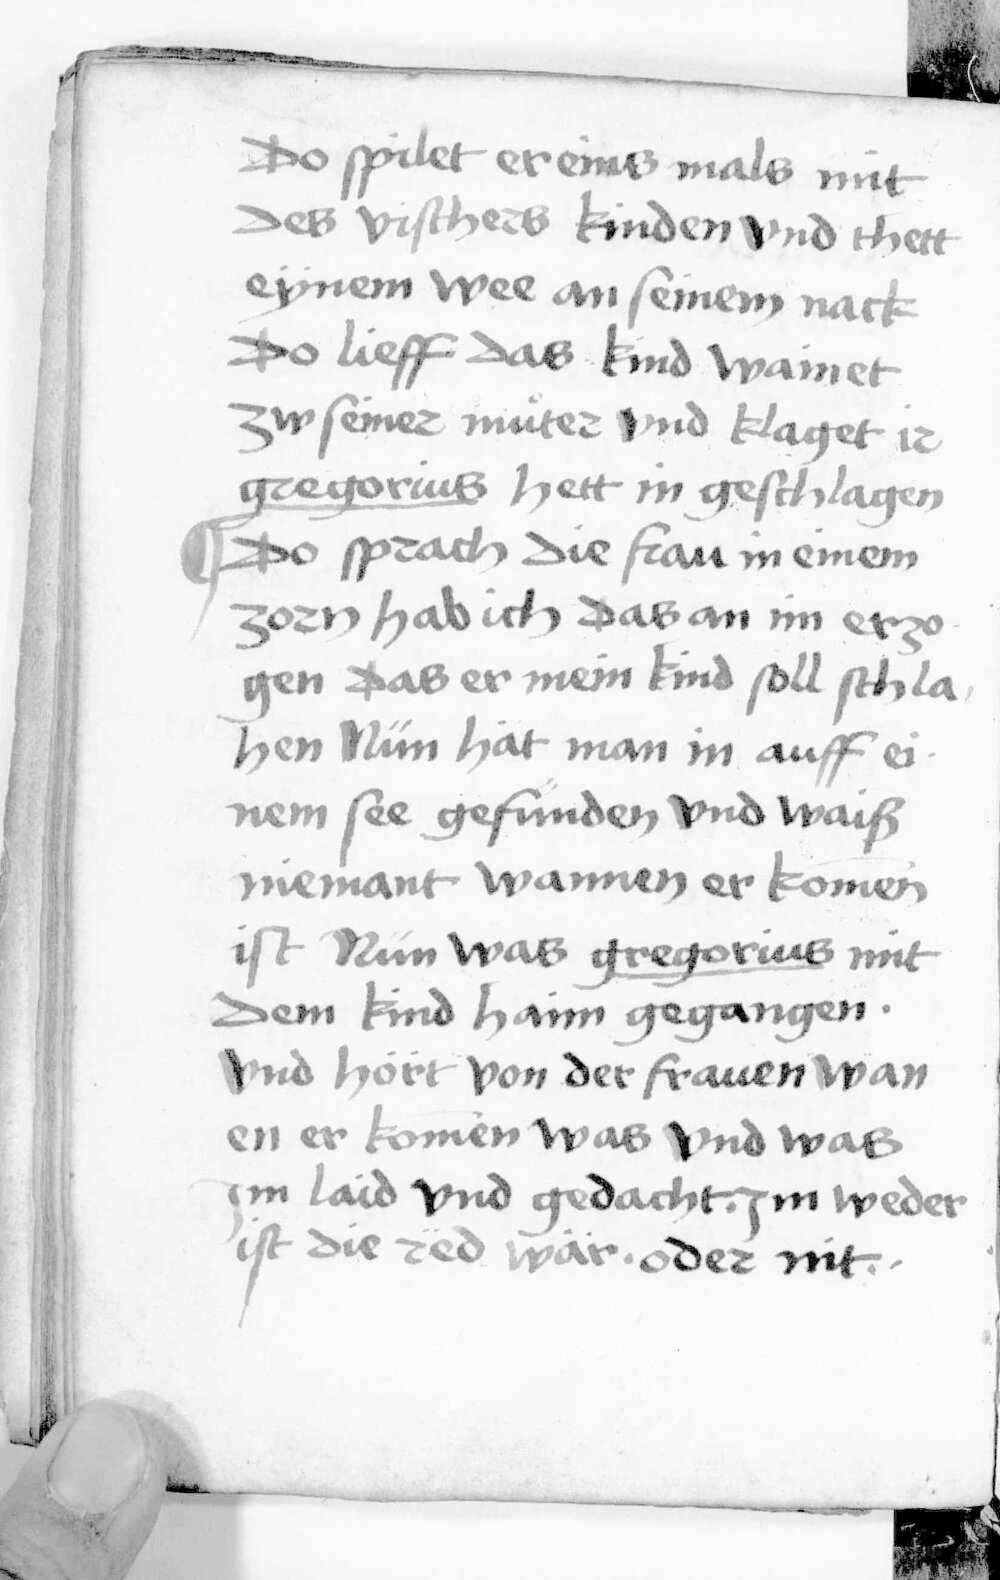 Do spilet er eins mals mit
des vischers kinden vnd thett
eÿnem wee an seinem nack
Do lieff das kind wainet
zw seiner můter vnd klaget ir
gregorius hett in geschlagen
¶ Do sprach die frau in einem
zorn hab ich das an im erzo-
gen das er mein kind soll schla-
hen Nün hat man in auff ei-
nem see gefünden vnd waiß
niemant wannen er komē̄n
ist Nün was gregorius mit
dem kind haim gegangen ·
vnd hört von der frauen wan
en er komēn was vnd was
Im laid vnd gedacht. Im weder
ist die rëd wär · oder nit ·